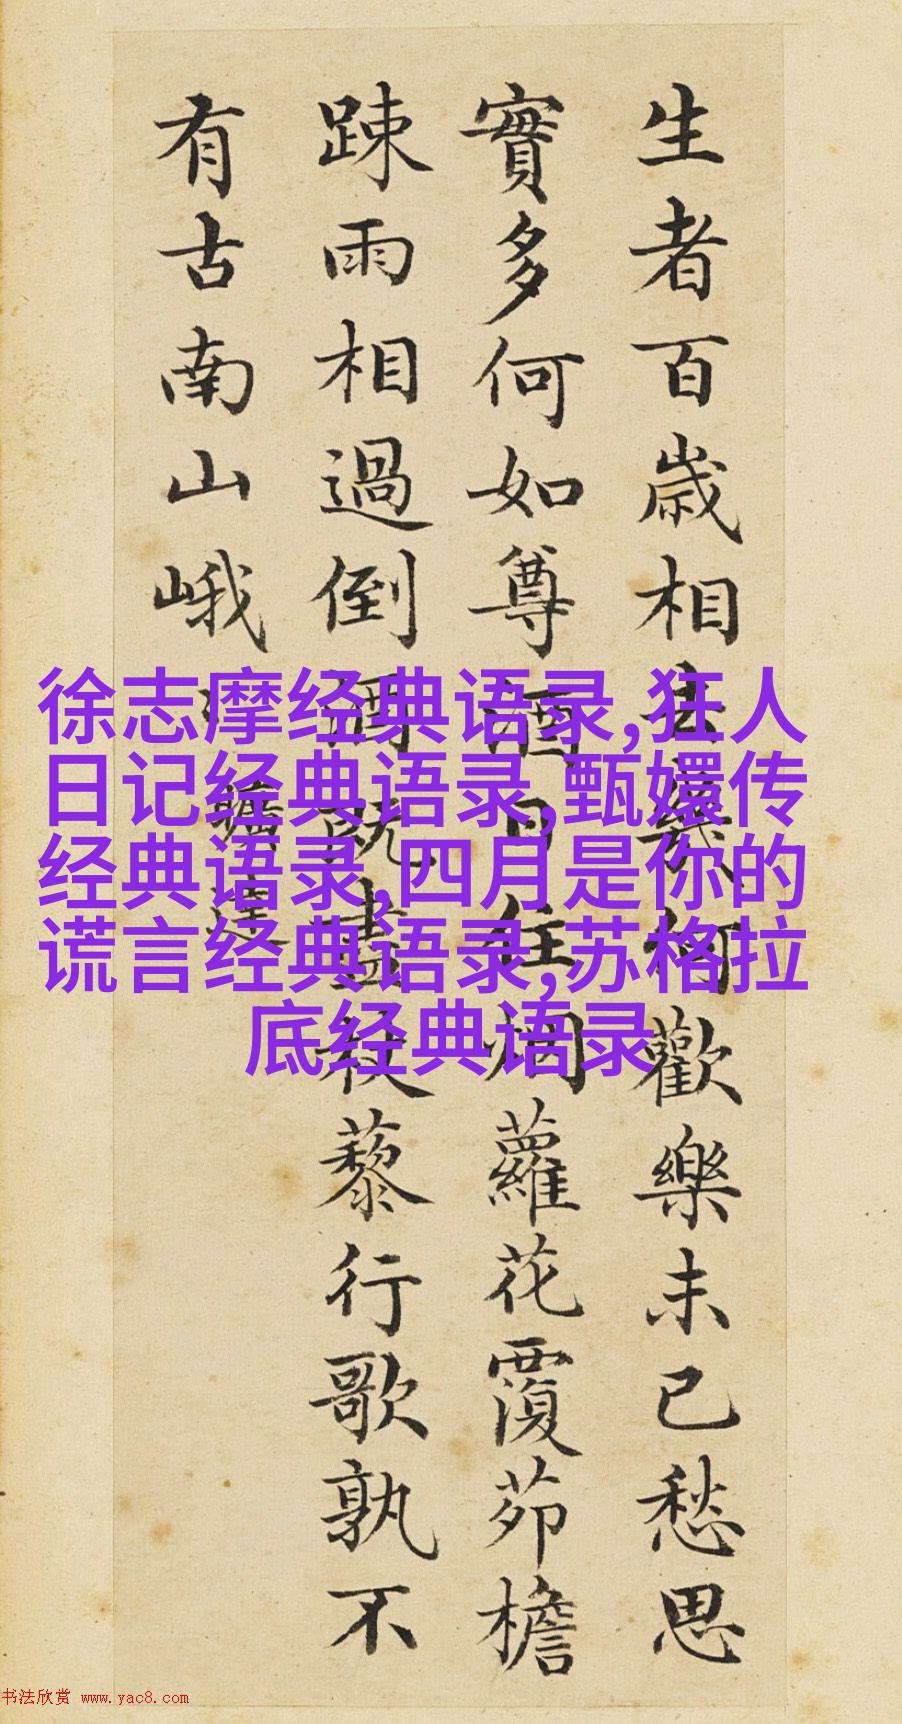 生者百歲相去幾何歡樂未已愁思
實多何如尊酒日往烟蘿花覆茆檐
踈雨相過倒酒既盡杖藜行歌孰不
有古南山峨
曠達
徐志摩经典语录,狂人
日记经典语录,甄嬛传
经典语录,四月是你的
谎言经典语录,苏格拉
底经典语录
书法欣赏 www.yac8.com